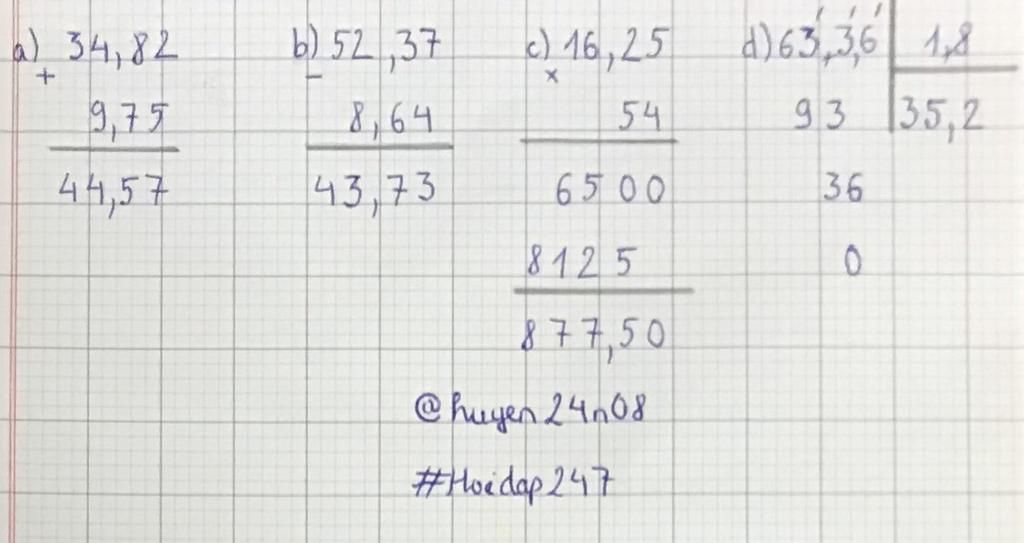 a) 34,82 b) 52,37 c) 16,25 d) 63,3,6 1,8
+ - x
9,75 8,64 54 93 35,2
44,57 43,73 6500 36
8125 0
877,50
@huyen24n08
#Hoidap247